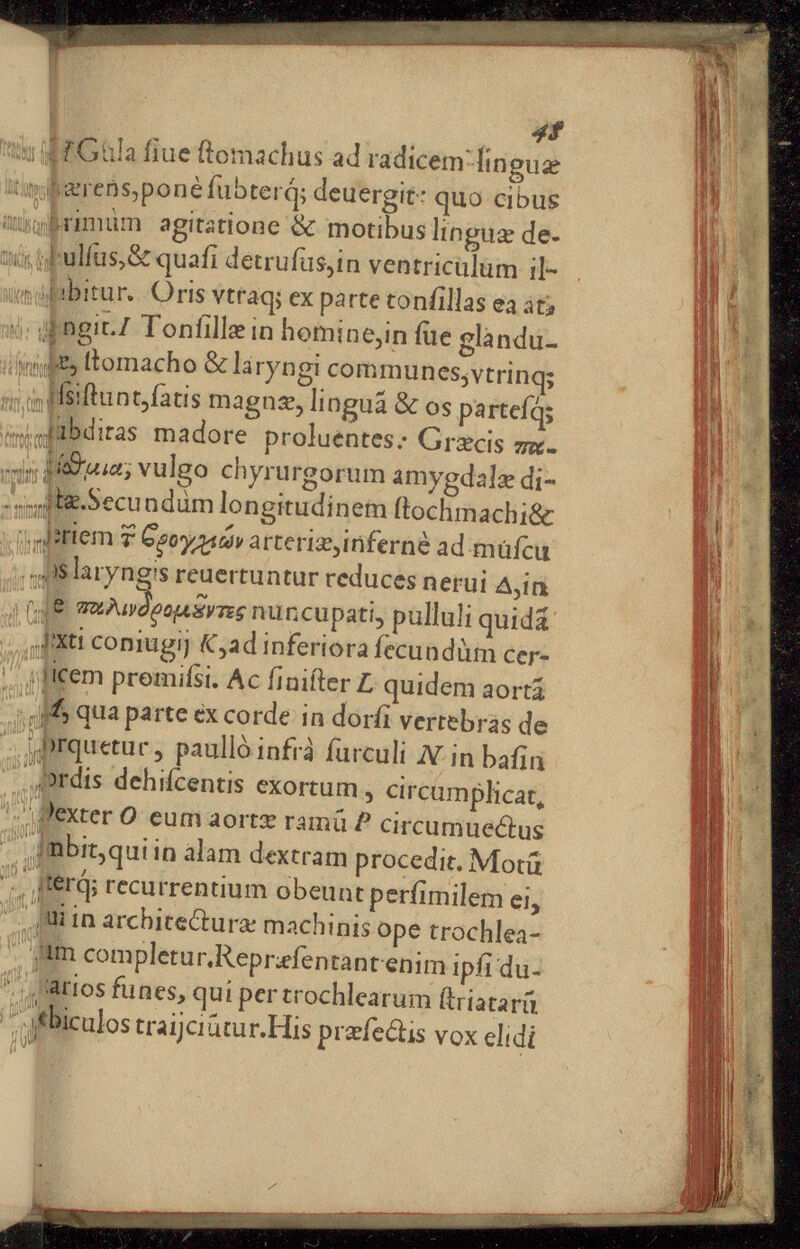 41
Gula siue stomachus ad radicem linguæ
hærens, ponè subterq́; deuergit: quo cibus
primùm agitatione & motibus linguæ de-
pulsus, & quasi detrusus, in ventriculum il-
labitur. Oris vtraq; ex parte tonsillas ea at-
tingit. I Tonsillæ in homine, in sue glandu-
læ, stomacho & laryngi communes, vtrinq;
assistunt, satis magnæ, linguã & os partesq́;
abditas madore proluentes: Græcis πα-
ρίσθμια; vulgo chyrurgorum amygdalæ di-
ctæ. Secundùm longitudinem stochmachi &
arteriæ, infernè ad muscu
los laryngis reuertuntur reduces nerui A, in
παλινδρομοῦντες nuncupati, pulluli quidã
sexti coniugij K, ad inferiora secundùm cer-
uicem promissi. Ac sinister L quidem aortã
qua parte ex corde in dorsi vertebras de
torquetur, paullò infrà surculi N in basin
cordis dehiscentis exortum, circumplicat,
Dexter O eum aortæ ramũ P circumuectus
ambit, qui in alam dextram procedit. Motũ
iterq́; recurrentium obeunt persimilem ei,
qui in architecturæ machinis ope trochlea-
rum completur. Repræsentant enim ipsi du-
ctarios funes, qui per trochlearum striatarũ
orbiculos traijciũtur. His præfectis vox elidi